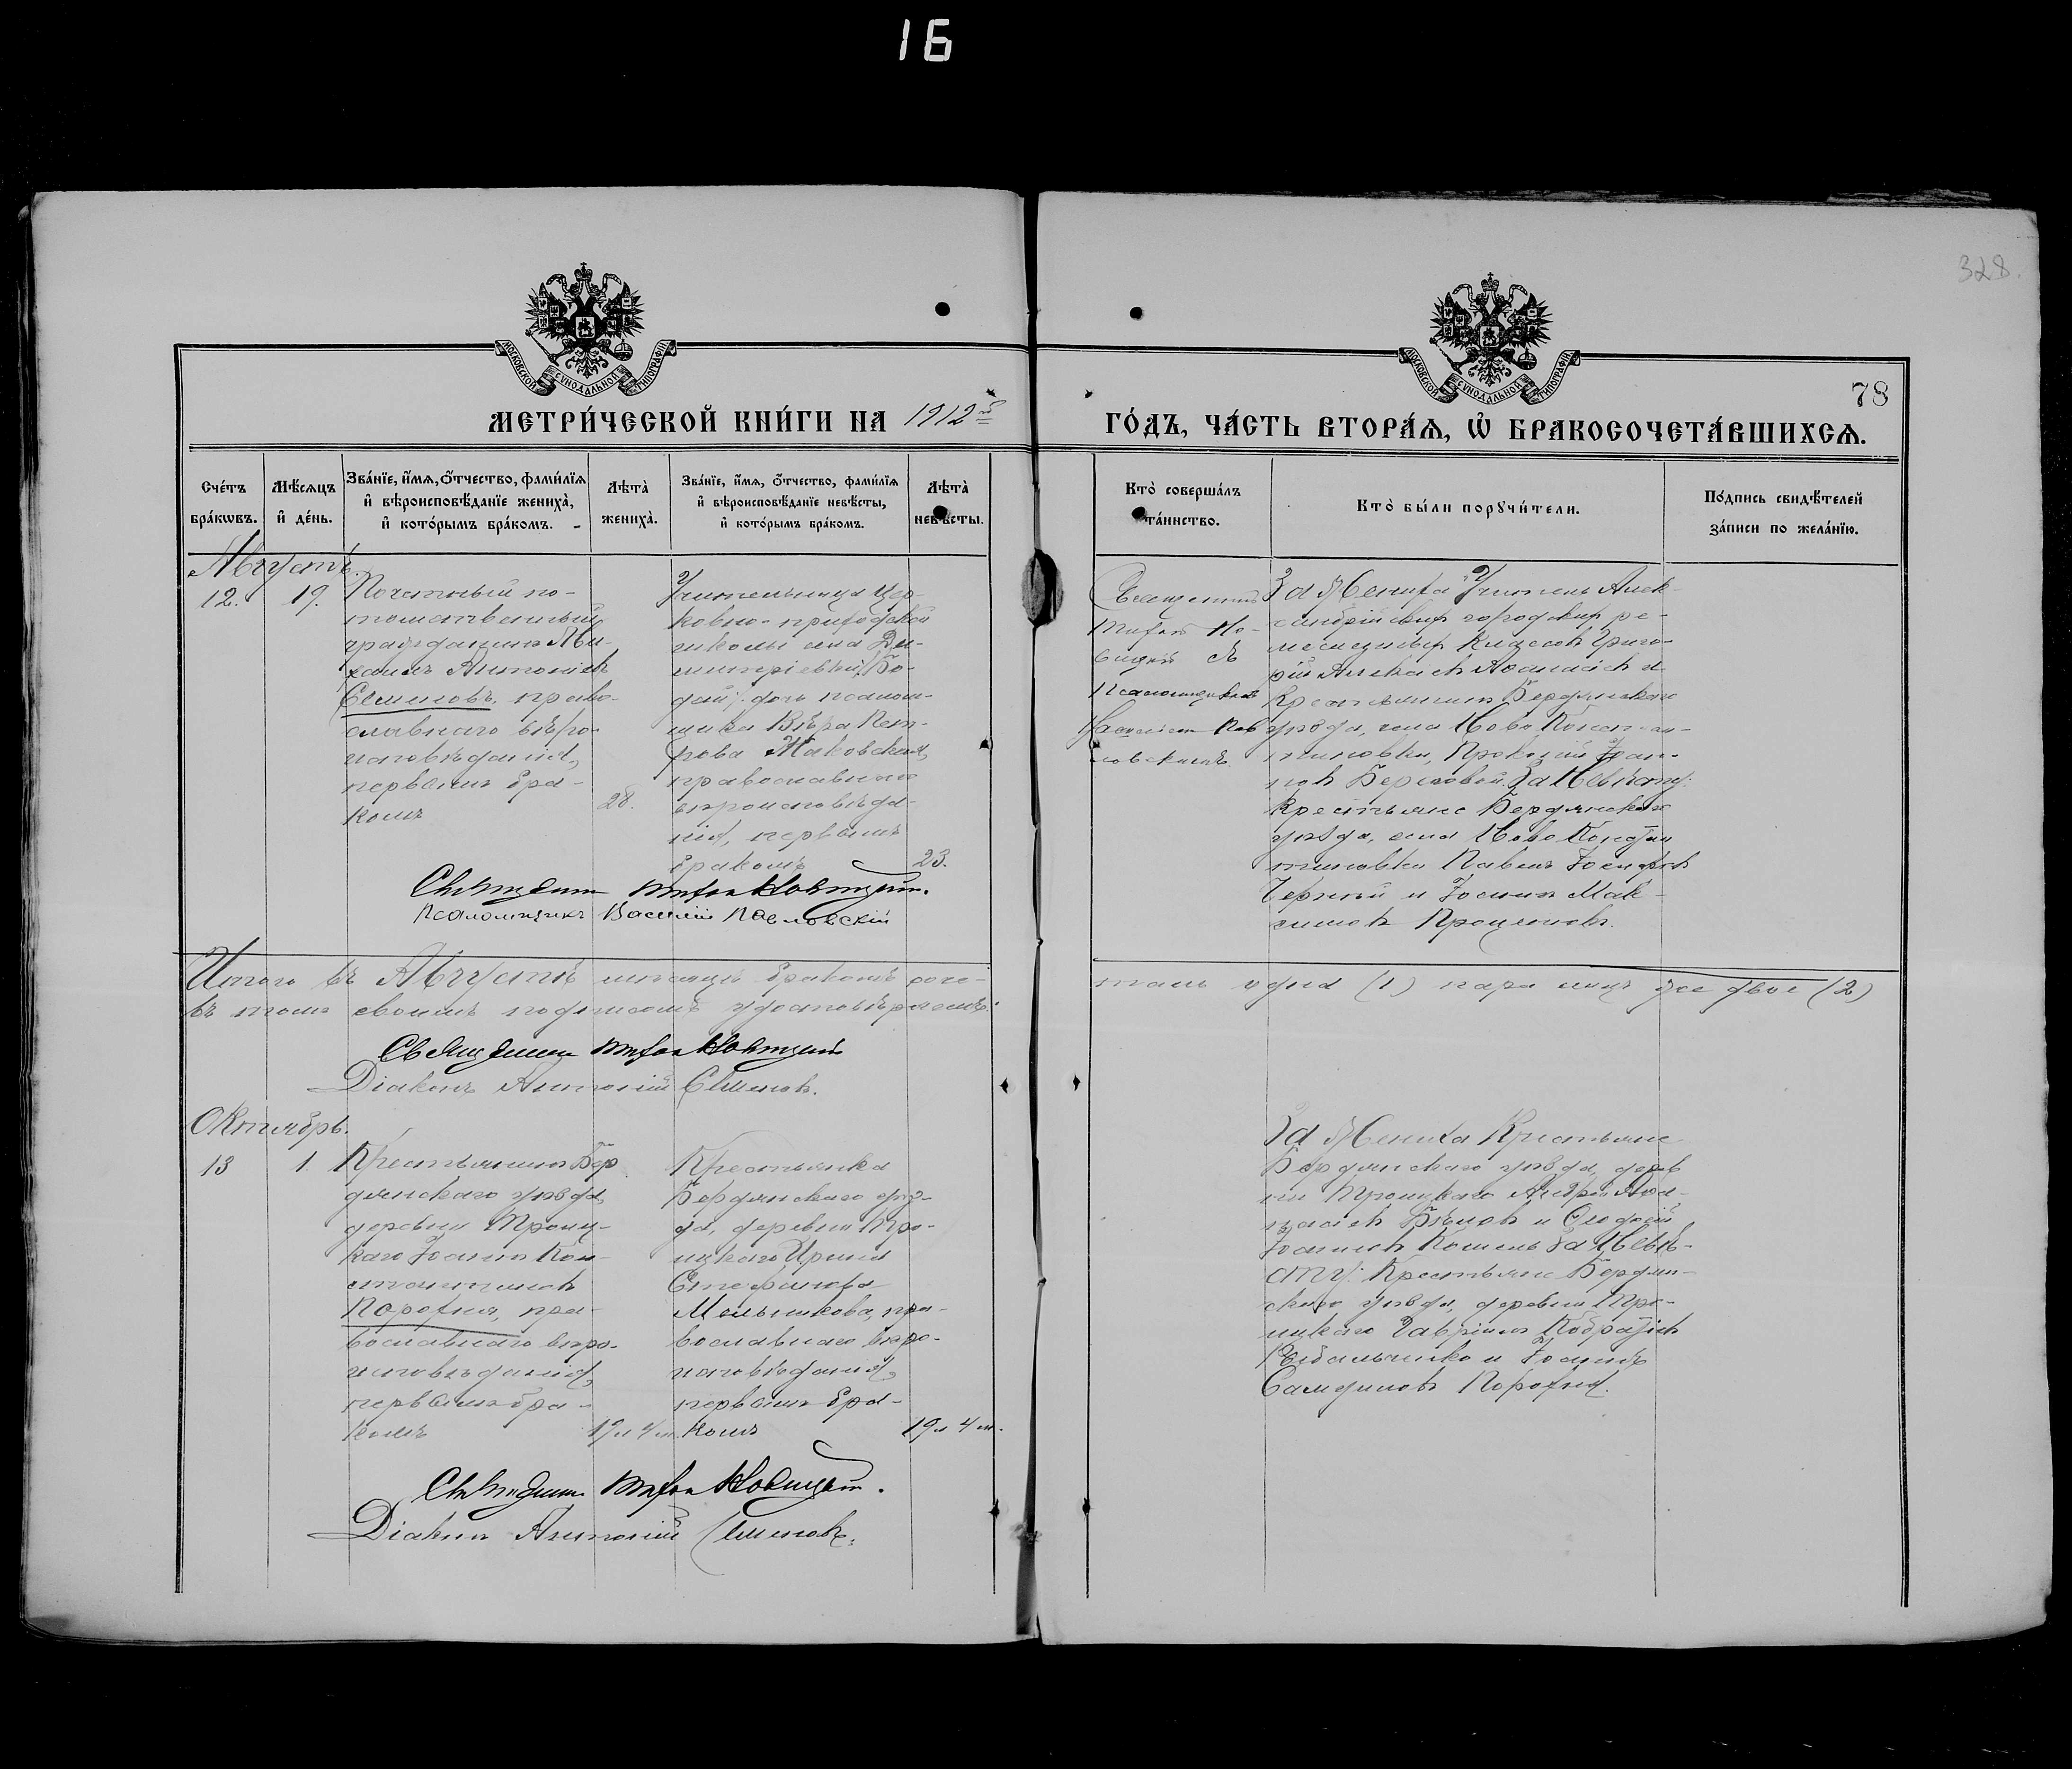 16
328.
78
МОСКОВСКОЙ СѴНОДАЛЬНОЙ ТИПОГРАФІИ
МОСКОВСКОЙ СѴНОДАЛЬНОЙ ТИПОГРАФІИ
МЕТРИ́ЧЕСКОЙ КНИ́ГИ НА 1912й
ГО́ДЪ, ЧА́СТЬ ВТОРА́Ѧ, Ѡ҆ БРАКОСОЧЕТА́ВШИХСѦ.
Сче́тъ
бра́кѡвъ.
Мѣ́сѧцъ
и҆ де́нь.
Зва́нїе, и҆́мѧ, ѻ҆́тчество, фами́лїѧ
и҆ вѣроисповѣ́данїе жениха̀,
и҆ кото́рымъ бра́комъ.
Лѣта̀
жениха̀.
Зва́нїе, и҆́мѧ, ѻ҆́тчество, фами́лїѧ
и҆ вѣроисповѣ́данїе невѣ́сты,
и҆ кото́рымъ бра́комъ.
Лѣта̀
невѣ́сты.
Кто̀ соверша́лъ
та́инство.
Кто̀ бы́ли порꙋчи́тели.
По́дпись свидѣ́телей
за́писи по жела́нїю.
Августъ.
12.
19.
Почетный по-
томственный
гражданинъ Ми-
хаилъ Антоніевъ
Семеновъ, право-
славнаго вѣро-
исповѣданія,
первымъ бра-
комъ
28.
Учительница цер-
ковно-приходской
школы села Ди-
митріевки,
дочь псалом-
щика Вѣра Пет-
рова Маковская,
православнаго
вѣроисповѣда-
нія, первымъ
бракомъ
23.
Священникъ
Тифон Но-
вицкій съ
Псаломщикомъ
Василіем Пав-
ловскимъ.
За Жениха: Учитель Алек-
сандрійских городских ре-
месленных классовъ Григо-
рій Афанасіев и
Крестьянинъ Бердянскаго
уѣзда, села Ново Констан-
тиновки, Прокопій Іоан-
новъ Береговой. За Невѣсту:
Крестьяне Бердянскаго
уѣзда, села Ново Констан
тиновки Павелъ Іосифовъ
Черный и Іоаннъ Мак-
симовъ Проценковъ.
Священникъ Тифон Новицкій.
Псаломщикъ Василій Павловскій
Итого въ Августѣ мѣсяцѣ бракомъ соче-
тали одна (1) пара лицъ же двое (2)
въ томъ своимъ подписомъ удостовѣряемъ:
Священникъ Тифон Новицкій
Діаконъ Антоній Семеновъ.
Октябрь.
13
1.
Крестьянинъ Бер
дянскаго уѣзда,
деревни Троиц-
каго Іоаннъ Кон-
стантиновъ
Порохня, пра-
вославнаго вѣро-
исповѣданія,
первымъ бра-
комъ
19 л 4 м.
Крестьянка
Бердянскаго уѣз-
да, деревни Тро-
ицкаго Ирина
Стефанова
Мельникова, пра-
вославнаго вѣро-
исповѣданія,
первымъ бра-
комъ
19 л 4 м.
За Жениха Крестьяне
Бердянскаго уѣзда, дерев
ни Троицкаго Андрей Афа-
насіевъ Бѣловъ и Ѳеодосій
Іоанновъ За Невѣ-
сту: Крестьяне Бердян-
скаго уѣзда, деревни Тро-
ицкаго Гавріилъ Кодратовъ
Рыбальченко и Іоаннъ
Порохня.
Священникъ Тифон Новицкій.
Діаконъ Антоній Семеновъ.